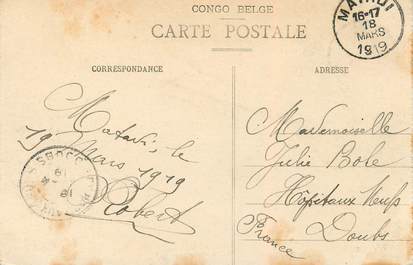 CONGO BELGE
CARTE POSTALE
CORRESPONDANCE
ADRESSE
MATADI
16-17
18
MARS
1919
Matadi, le
19 Mars 1919
Robert
Mademoiselle
Julie Bole
Hôpitaux Neufs
Doubs
France
DOUBS